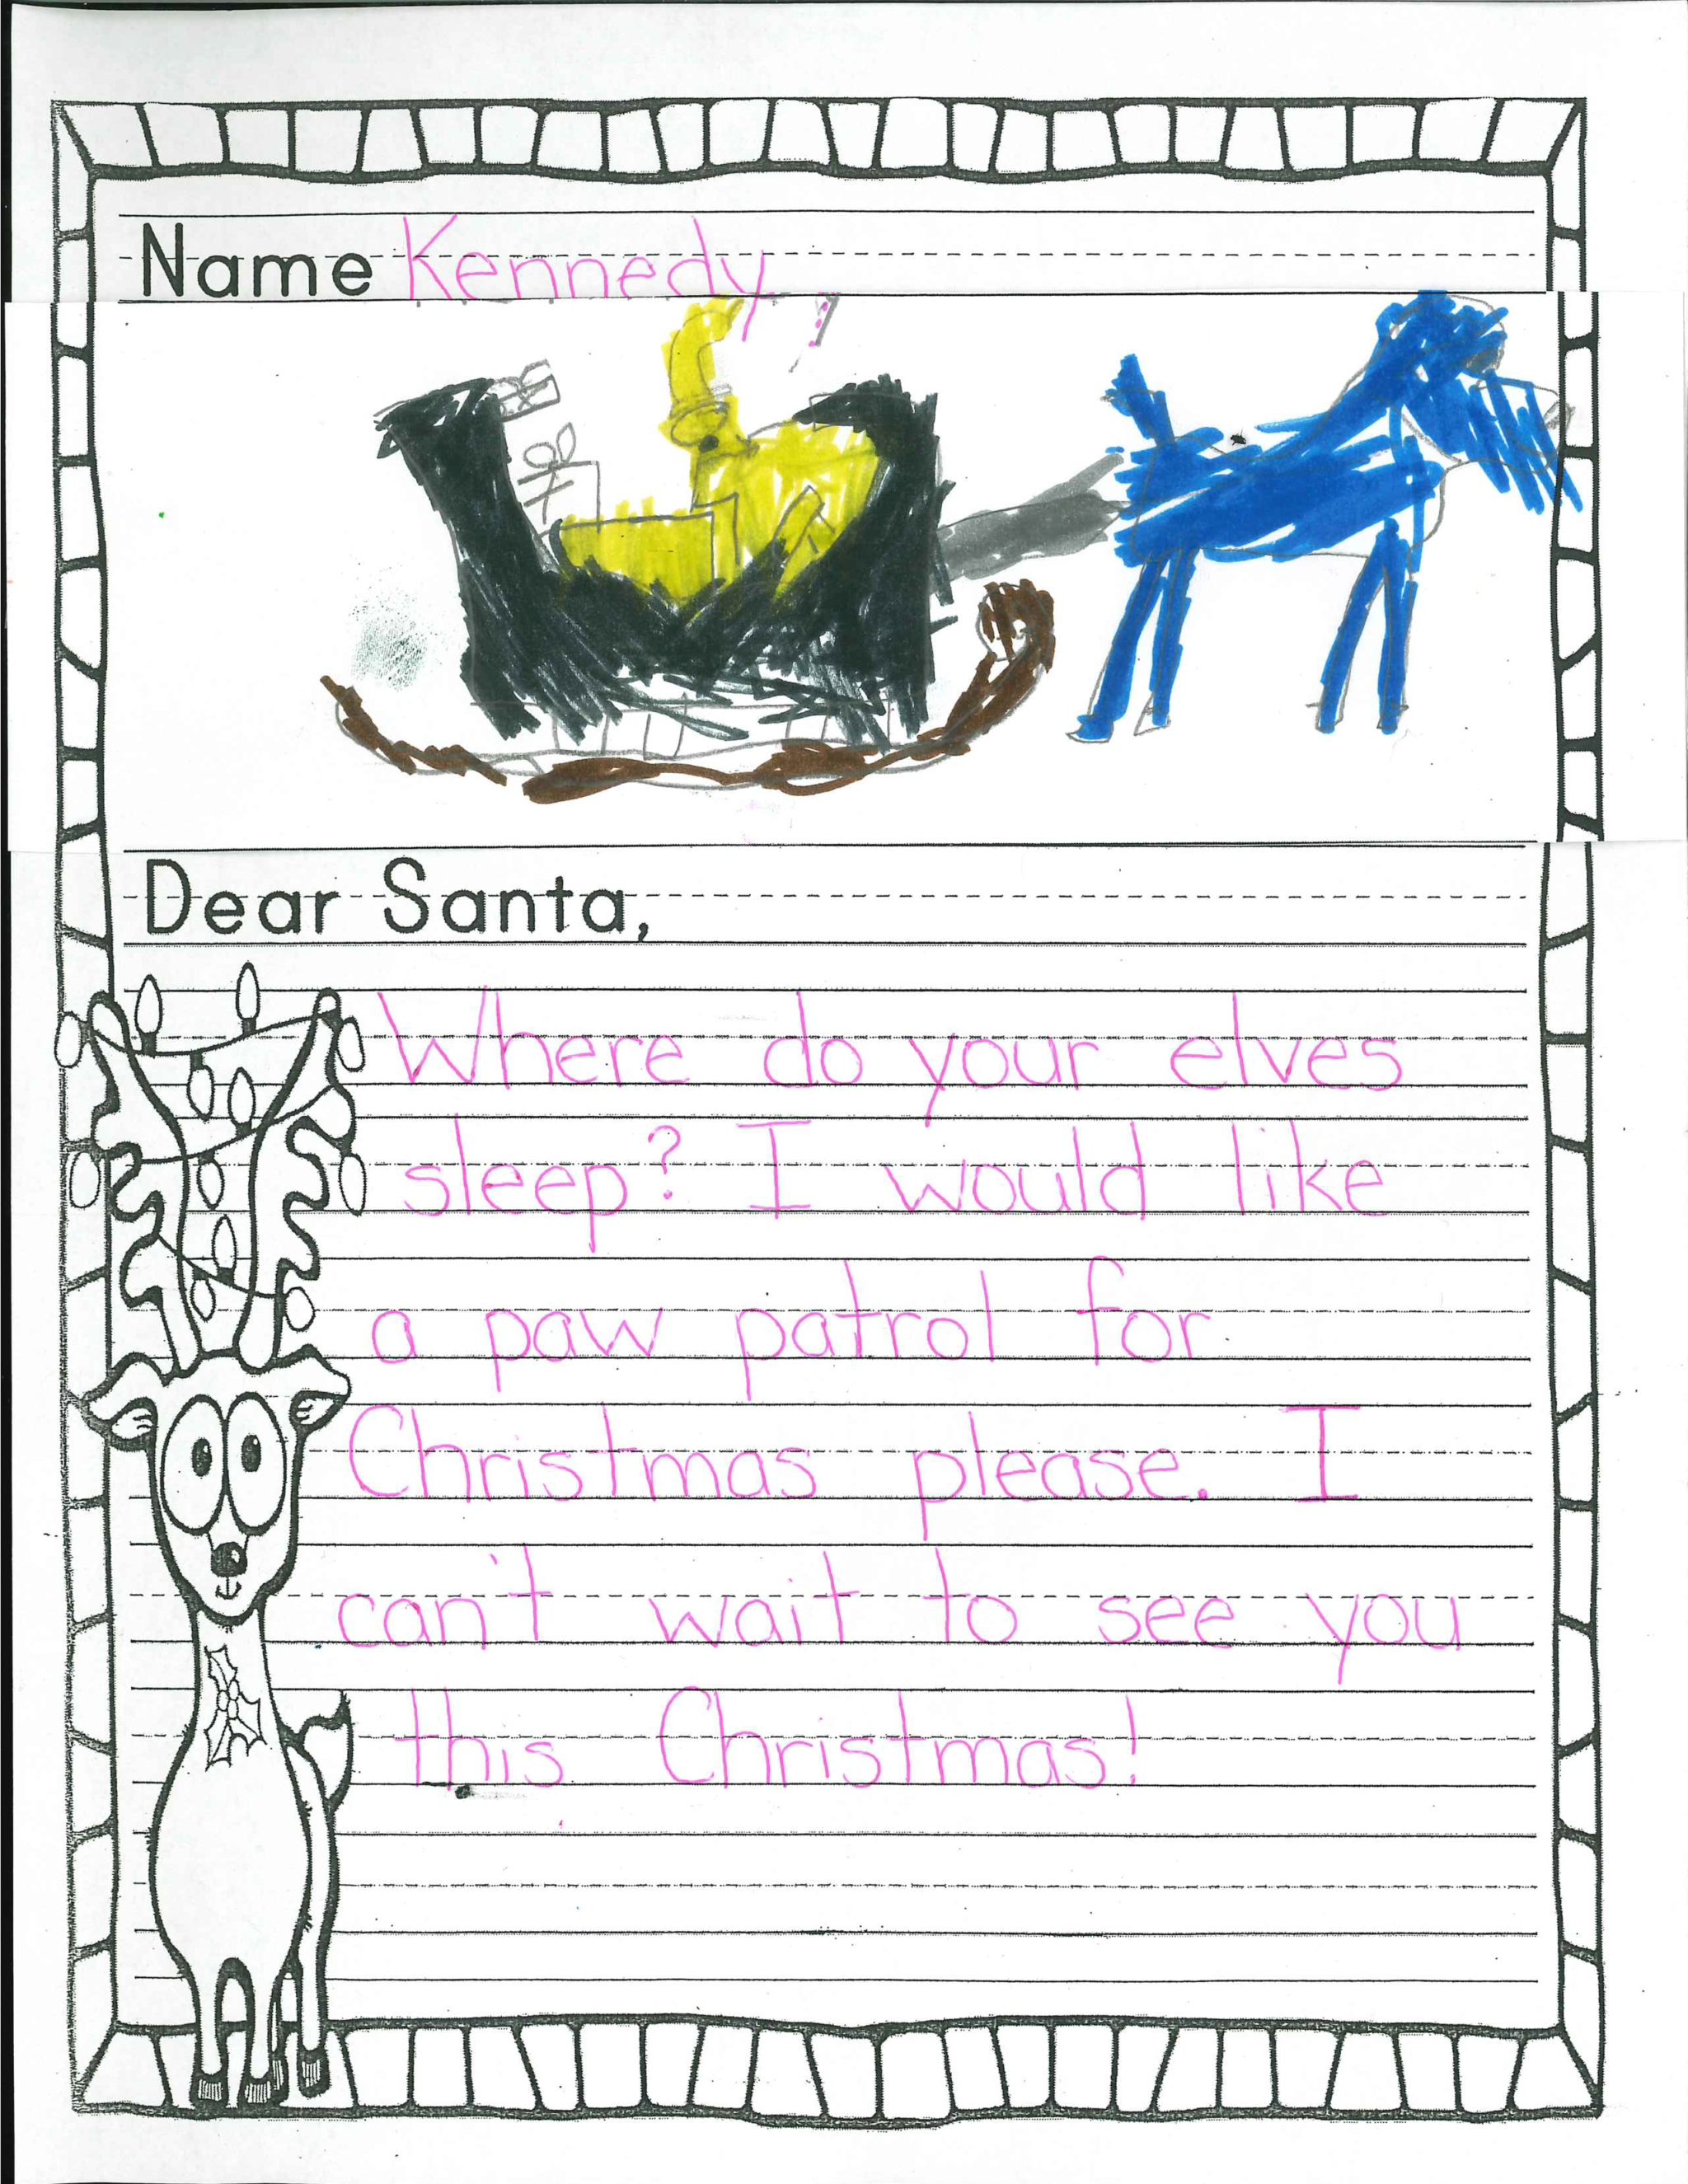 Name Kennedy
Dear Santa,
Where do your elves
sleep? I would like
a paw patrol for
Christmas please. I
can't wait to see you
this Christmas!